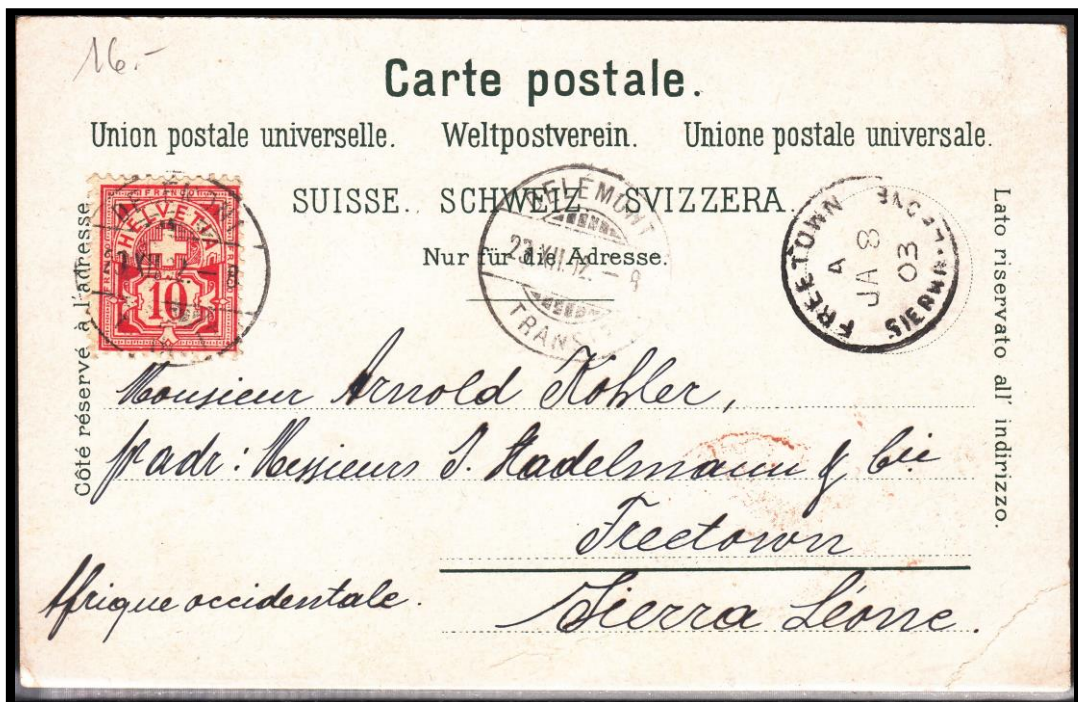 16.-
Carte postale.
Union postale universelle. Weltpostverein. Unione postale universale.
SUISSE. SCHWEIZ SVIZZERA.
Nur für die Adresse.
Côté réservé à l'adresse.
Lato riservato all' indirizzo.
FRANCO
HELVETIA
10
XII. 2 - 8
23.XII.12. - 8
TRANSIT
FREETOWN
A
JA 8
03
SIERRA-LEONE
Monsieur Arnold Kohler,
pr adr: Messieurs J. Stadelmann & Cie
Freetown
Afrique occidentale.
Sierra Léone.